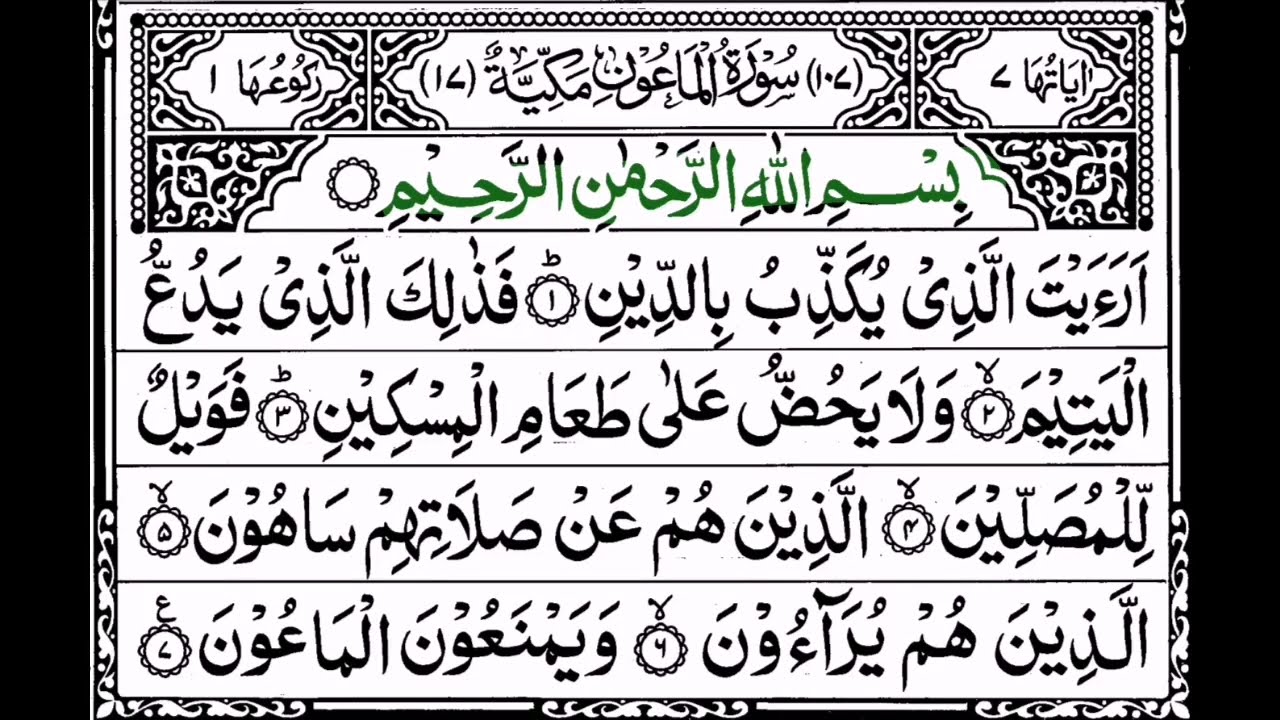 اٰيَاتُهَا ٧ (١٠٧) سُوْرَةُ الْمَاعُوْنِ مَكِّيَّةٌ (١٧) رُكُوْعُهَا ١
بِسْمِ اللّٰهِ الرَّحْمٰنِ الرَّحِيْمِ ۝
اَرَءَيْتَ الَّذِىْ يُكَذِّبُ بِالدِّيْنِ ؕ﴿١﴾ فَذٰلِكَ الَّذِىْ يَدُعُّ
الْيَتِيْمَ ۙ﴿٢﴾ وَلَا يَحُضُّ عَلٰى طَعَامِ الْمِسْكِيْنِ ؕ﴿٣﴾ فَوَيْلٌ
لِّلْمُصَلِّيْنَ ۙ﴿٤﴾ الَّذِيْنَ هُمْ عَنْ صَلَاتِهِمْ سَاهُوْنَ ۙ﴿٥﴾
الَّذِيْنَ هُمْ يُرَآءُوْنَ ۙ﴿٦﴾ وَيَمْنَعُوْنَ الْمَاعُوْنَ ع﴿٧﴾